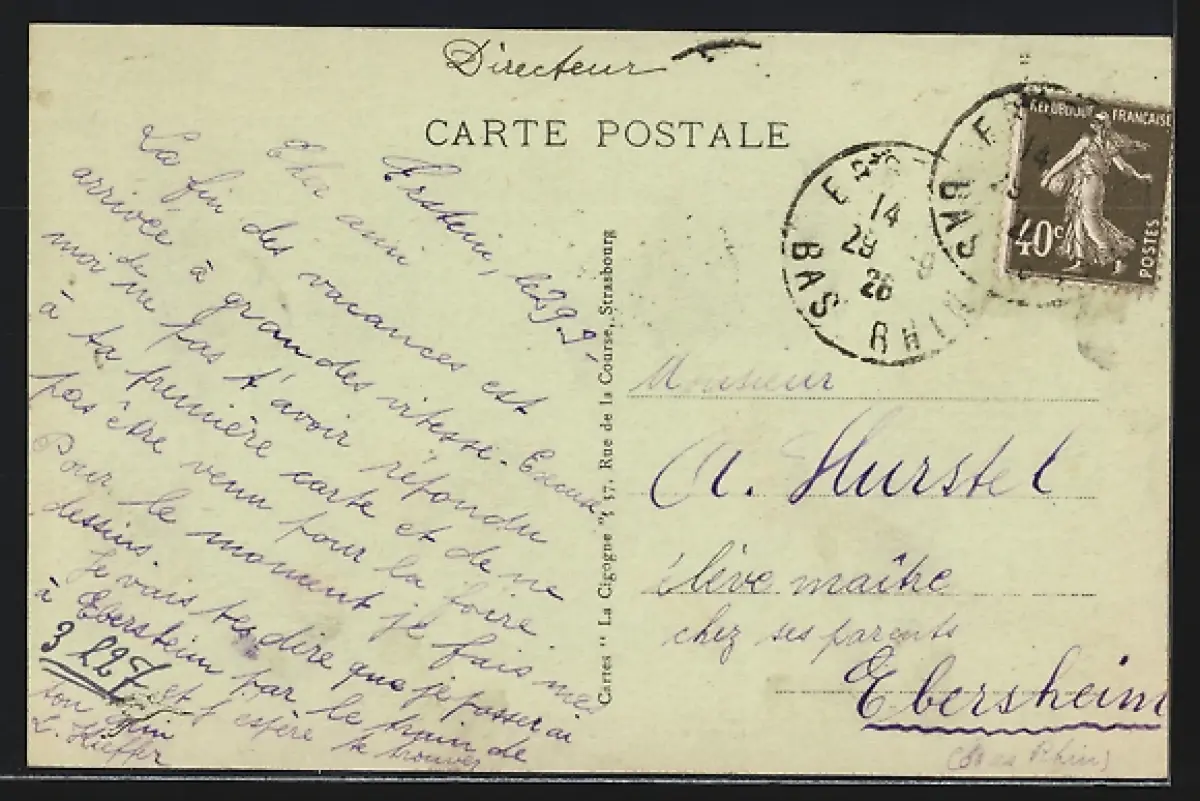 Directeur
CARTE POSTALE
Erstein, le 29.9.
Cher ami
La fin des vacances est
arrivée à grandes vitesse. Excuse
moi de ne pas t'avoir répondu
à ta première carte et de ne
pas être venu pour la foire
Pour le moment je fais mes
dessins.
Je vais te dire que je passerai
à Ebersheim par le train de
3 227 et j'espère te trouver
ton ami
L. Kieffer
Cartes "La Cigogne", 37, Rue de la Course, Strasbourg
14
28
26
BAS RHIN
14
BAS
REPUBLIQUE FRANÇAISE
40c
POSTES
Monsieur
A. Hurstel
élève maître
chez ses parents
Ebersheim
(Bas Rhin)